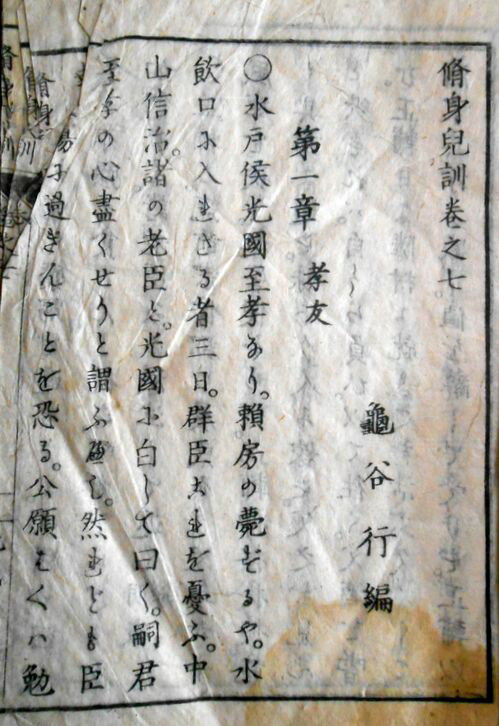 脩身兒訓卷之七
龜谷行編
第一章 孝友
○水戸侯光國至孝なり。賴房の薨ずるや。水
飲口に入れざる者三日。群臣これを憂ふ。中
山信治。諸の老臣と。光國に白して曰く。嗣君
至孝の心盡くせりと謂ふべし。然れども臣
過ぎんことを恐る。公願はくハ勉